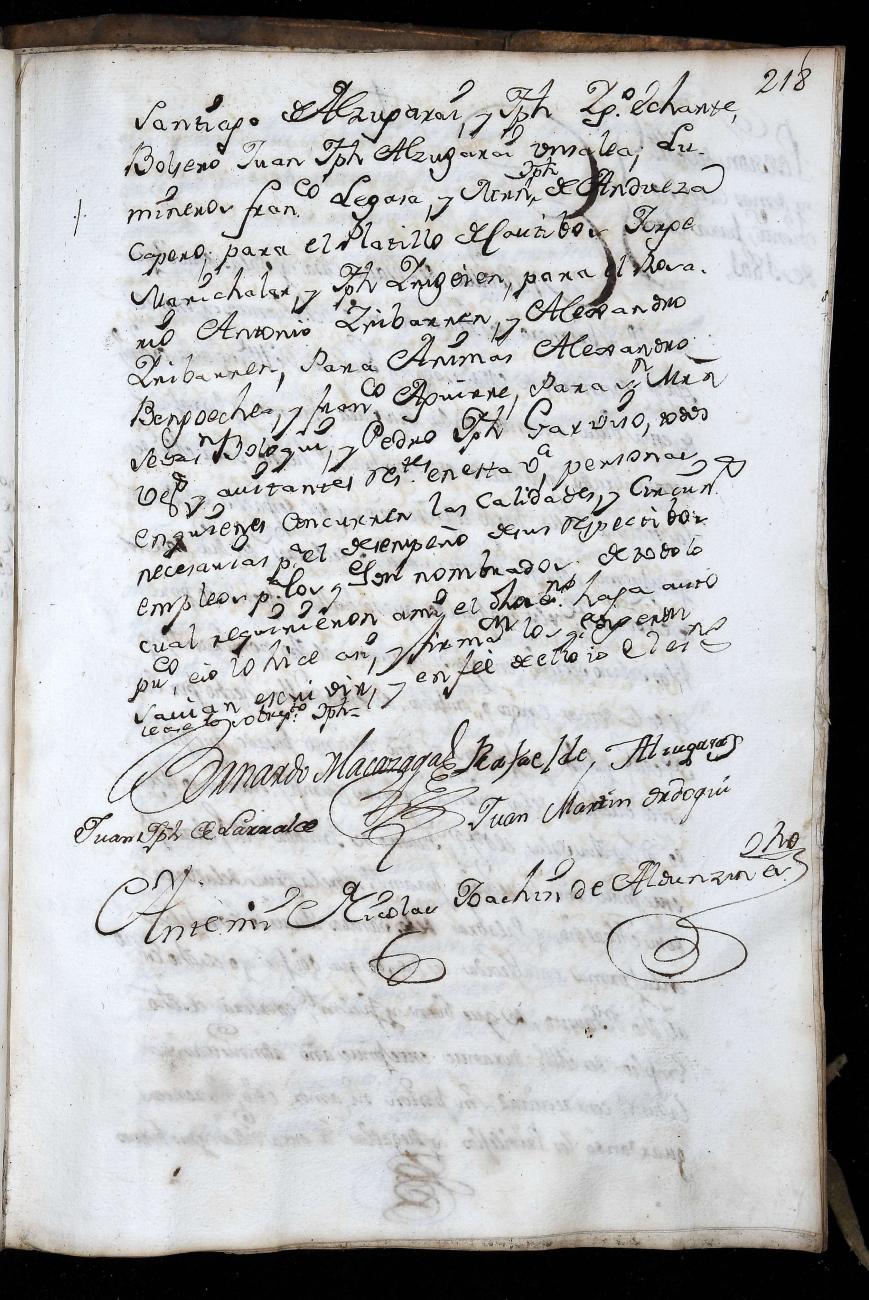 218
Santiago de Alzugarai, y Jph Yg.º Echarte,
Bolsero Juan Jph Alzugarai Vnsalea; Lu-
mineros Fran.co Legasa, y Jph de Andueza
Capero; para el Platillo de Cautibos Jorpe
Marichalar, y Jph Yrigoien, para el Rosa-
rio Antonio Yribarren, y Alexandro
Yribarren, Para Animas Alexandro
Bengoechea, y Fran.co Aguirre, Para
Sevas.n Bologui, y Pedro Jph Garviso, todos
y avitantes en esta V.a personas
en quienes concurren las Calidades, y Circun.s
necesarias p.a el desempeño de sus respectibos
empleos p.a los q.e son nombrados, de todo lo
cual requirieron a mi el dho es.no haga auto
pu.co eio lo hice asi, y firmaron los q.e dixeron
savian escrivir, y en fee de ello io el es.no
Jph-
Bernardo Macazaga Rafael de Alzugarai
Juan Jph de Larralde Juan Martin Ordoqui
Antemi Nicolas Joachin de Aldunzin es.no